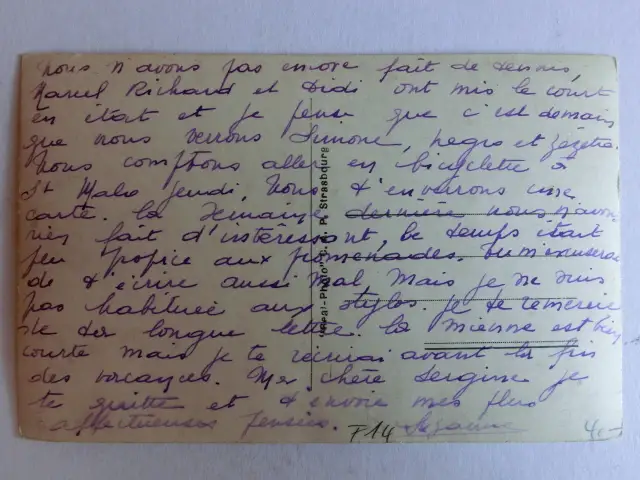 nous n'avons pas encore fait de tennis,
Marcel Richard et Didi ont mis le court
en état et je pense que c'est demain
que nous verrons Simone, negro et
Nous comptons aller en bicyclette à
St Malo jeudi, Nous t'enverrons une
carte. la semaine dernière nous n'avons
rien fait d'intéressant, le temps était
peu propice aux promenades. Tu m'excuseras
de t'écrire aussi mal, Mais je ne suis
pas habituée aux stylos. Je te remercie
de ta longue lettre. la mienne est bien
courte mais je te récrirai avant la fin
des vacances. Ma chère Sergine je
te quitte et t'envoie mes plus
affectueuses pensées.
Suzanne
F14
4.-
Réal-Photo
P. Strasbourg